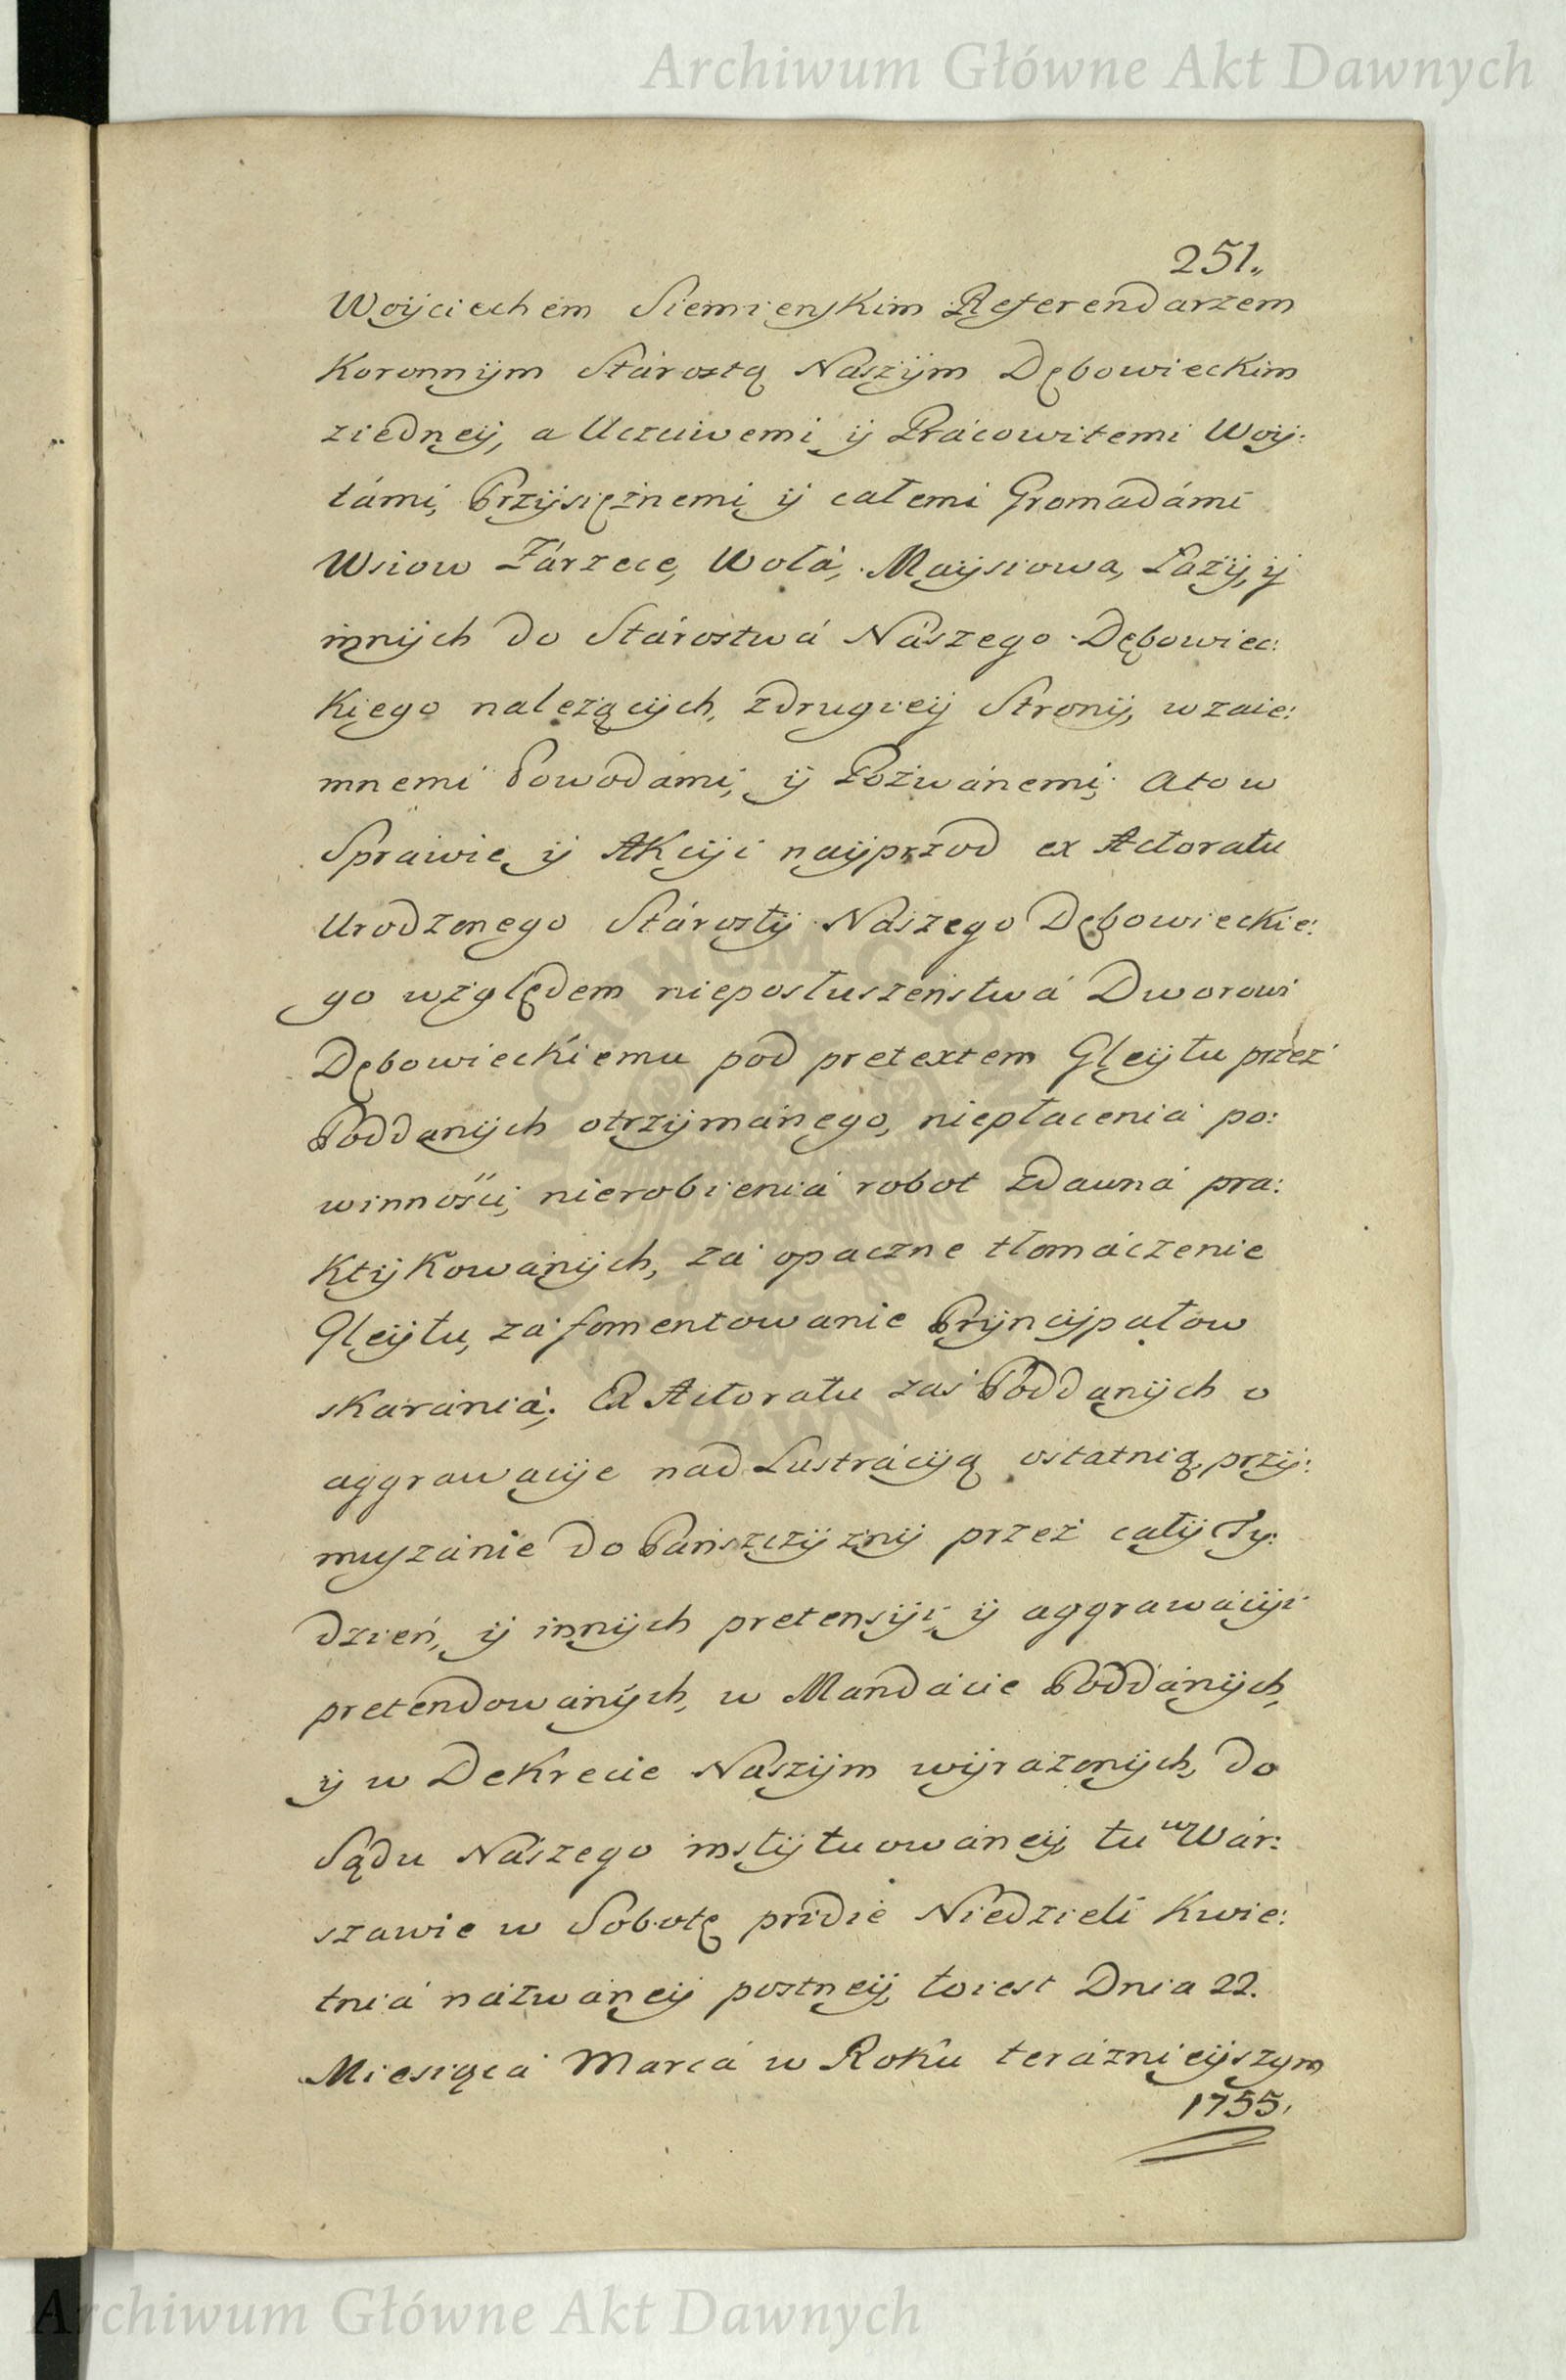 Archiwum Główne Akt Dawnych
251.
Woyciechem Siemienskim Referendarzem
Koronnym Stárostą Nászym Dębowieckim
ziedney, a Uczciwemi y Prácowitemi Woy:
támi, Przysiężnemi y całemi Gromadámi
Wsiow Zárzece, Wolá, Maysiowa, Łazy, y
innych do Stárostwá Nászego Dębowiec:
kiego nalezących, zdrugiey Strony, wzaie:
mnemi Powodámi, y Pozwánemi; a to w
Sprawie y Akcyi nayprzod ex Actoratu
Urodzonego Stárosty Nászego Dębowieckie:
go względem nieposłuszeństwá Dworowi
Dębowieckiemu pod pretextem Gleytu przez
Poddanych otrzymánego, niepłacenia po:
winności, nierobieniá robot zdawná pra:
ktykowánych, zá opaczne tłomáczenie
Gleytu, zá fomentowanie Pryncypałow
skarániá; Ex Actoratu zaś Poddanych o
aggrawacye nad Lustrácyą ostatnią, przy:
muszánie do Pańszczyzny przez cały Ty:
dzień, y innych pretensyi, y aggrawácyi
pretendowánych, w Mandácie Poddánych,
y w Dekrecie Naszym wyrażonych, do
Sądu Nászego instytuowáney, tu w War:
szawie w Sobotę pridie Niedzieli Kwie:
tniá názwáney postney, toiest Dnia 22.
Miesiąca Marcá w Roku teráznieyszym
1755.
ARCHIWUM GŁÓWNE
AKT DAWNYCH
Archiwum Główne Akt Dawnych